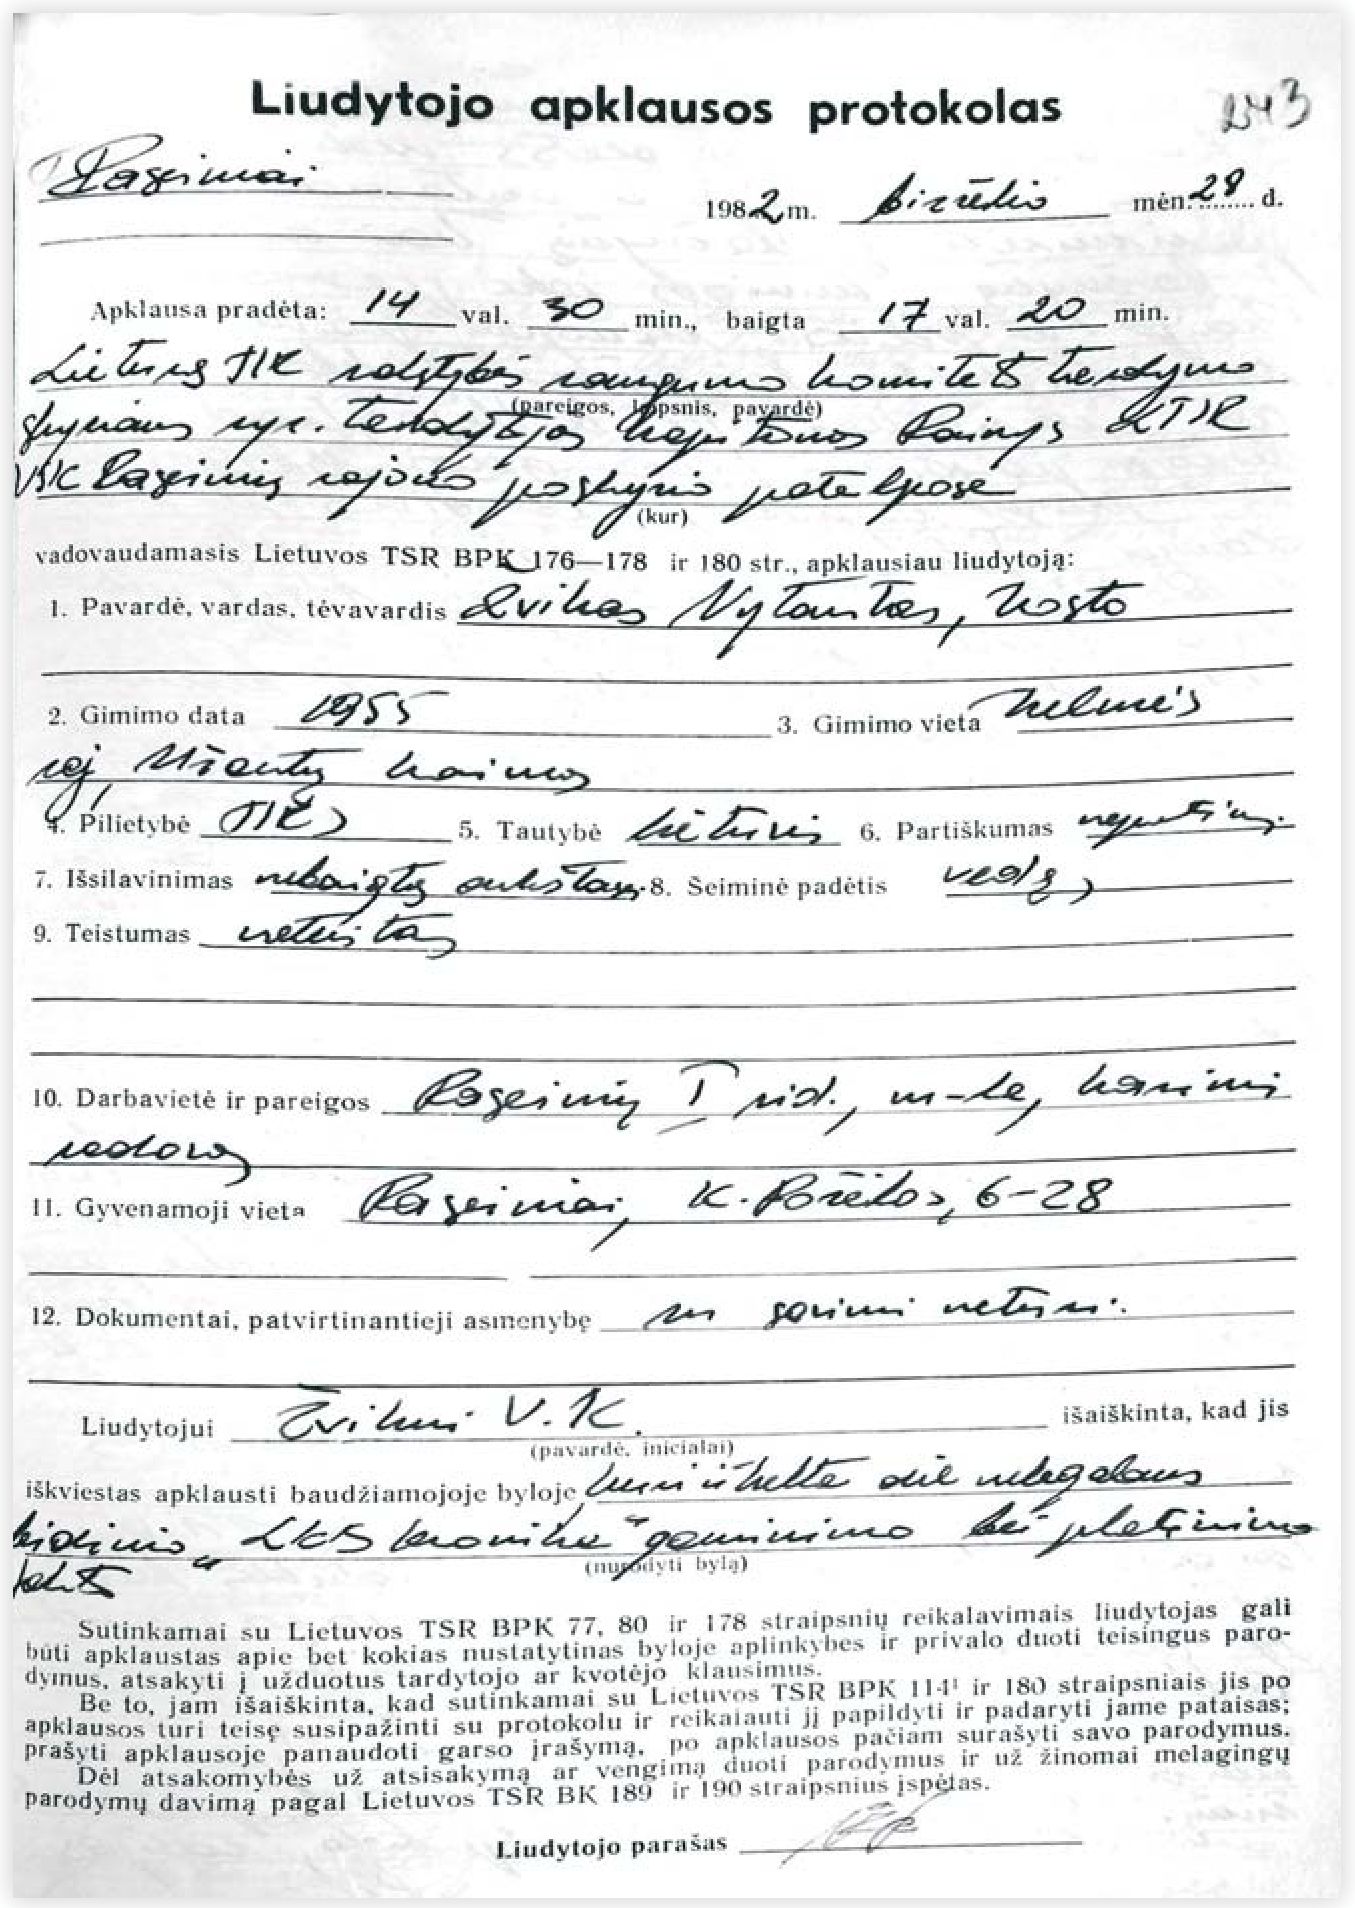 Liudytojo apklausos protokolas
243
Raseiniai
1982 m. birželio mėn. 28 d.
Apklausa pradėta: 14 val. 30 min., baigta 17 val. 20 min.
Lietuvos TSR valstybės saugumo komiteto tardymo
(pareigos, laipsnis, pavardė)
skyriaus vyr. tardytojas kapitonas Rainys LTSR
VSK Raseinių rajono poskyrio patalpose
(kur)
vadovaudamasis Lietuvos TSR BPK 176—178 ir 180 str., apklausiau liudytoją:
1. Pavardė, vardas, tėvavardis Žvikas Vytautas, Kosto
2. Gimimo data 1955 3. Gimimo vieta Kelmės
raj, kaimas
4. Pilietybė TSRS 5. Tautybė lietuvis 6. Partiškumas nepartinis
7. Išsilavinimas nebaigtas aukštasis 8. Šeiminė padėtis vedęs
9. Teistumas neteistas
10. Darbavietė ir pareigos Raseinių I vid. m-la, karinis
vadovas
11. Gyvenamoji vieta Raseiniai, K. Požėlos, 6-28
12. Dokumentai, patvirtinantieji asmenybę su savimi neturi.
Liudytojui Žvikui V. K. išaiškinta, kad jis
(pavardė, inicialai)
iškviestas apklausti baudžiamojoje byloje, kuri iškelta dėl nelegalaus
leidinio „LKB kronika“ gaminimo bei platinimo
(nurodyti bylą)
fakto
Sutinkamai su Lietuvos TSR BPK 77, 80 ir 178 straipsnių reikalavimais liudytojas gali
būti apklaustas apie bet kokias nustatytinas byloje aplinkybes ir privalo duoti teisingus paro-
dymus, atsakyti į užduotus tardytojo ar kvotėjo klausimus.
Be to, jam išaiškinta, kad sutinkamai su Lietuvos TSR BPK 114¹ ir 180 straipsniais jis po
apklausos turi teisę susipažinti su protokolu ir reikalauti jį papildyti ir padaryti jame pataisas;
prašyti apklausoje panaudoti garso įrašymą, po apklausos pačiam surašyti savo parodymus.
Dėl atsakomybės už atsisakymą ar vengimą duoti parodymus ir už žinomai melagingų
parodymų davimą pagal Lietuvos TSR BK 189 ir 190 straipsnius įspėtas.
Liudytojo parašas